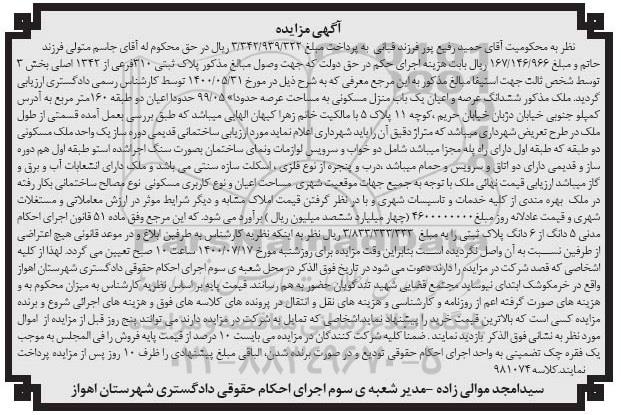 آگهی مزایده
نظر به محکومیت آقای حمید رفیع پور فرزند قبانی به پرداخت مبلغ ۳/۳۴۲/۹۳۹/۳۲۲ ریال در حق محکوم له آقای جاسم متولی فرزند
حاتم و مبلغ ۱۶۷/۱۴۶/۹۶۶ ریال بابت هزینه اجرای حکم در حق دولت که جهت وصول مبالغ مذکور پلاک ثبتی ۳۱۰فرعی از ۱۳۴۲ اصلی بخش ۳
توسط شخص ثالث جهت استیفا مبالغ مذکور به این مرجع معرفی که به شرح ذیل در مورخ ۱۴۰۰/۰۵/۳۱ توسط کارشناس رسمی دادگستری ارزیابی
گردید. ملک مذکور ششدانگ عرصه و اعیان یک باب منزل مسکونی به مساحت عرصه حدودا» ۹۹/۰۵ حدودا اعیان دو طبقه ۱۶۰متر مربع به آدرس
کمپلو جنوبی خیابان دژبان خیابان حریم ،کوچه ۱۱ پلاک ۵ با مالکیت خانم زهرا کیهان الهایی میباشد که طبق بررسی بعمل آمده قسمتی از طول
ملک در طرح تعریض شهرداری میباشد که متراژ دقیق آن را باید شهرداری اعلام نماید مورد ارزیابی ساختمانی قدیمی دوره ساز یک واحد ملک مسکونی
دو طبقه که طبقه اول دارای راه پله مجزا میباشد شامل دو خواب و سرویس لوازمات ونمای ساختمان بصورت سنگ اجراشده استو طبقه اول هم دوره
ساز و قدیمی دارای دو اتاق و سرویس و حمام میباشد ،درب و پنجره از نوع فلزی ، اسکلت سازه سنتی می باشد و ملک دارای انشعابات آب و برق و
گاز میباشد ارزیابی قیمت نهائی ملک با توجه به جمیع جهات موقعیت شهری مساحت اعیان و نوع کاربری مسکونی نوع مصالح ساختمانی بکار رفته
در ملک بهره مندی از کلیه خدمات و تاسیسات شهری و با در نظر گرفتن قیمت املاک مشابه و دیگر شرایط موثر در ارزش معاملاتی و مستغلات
شهری و قیمت عادلانه روز مبلغ۴۶۰۰۰۰۰۰۰۰ (چهار میلیارد ششصد میلیون ریال ) برآورد می شود. که این مرجع وفق ماده ۵۱ قانون اجرای احکام
مدنی ۵ دانگ از ۶ دانگ پلاک ثبتی را به مبلغ ۳/۸۳۳/۳۳۳/۳۳۳ ریال نظر به اینکه نظریه کارشناس به طرفین ابلاغ و در موعد قانونی هیچ اعتراضی
از طرفین نسبت به آن واصل نگردیده است بنابراین وقت مزایده برای روزشنبه مورخ ۱۴۰۰/۰۷/۱۷ ساعت ۱۰ صبح تعیین می گردد. لهذا از کلیه
اشخاصی که قصد شرکت در مزایده را دارند دعوت می شود در تاریخ فوق الذکر در محل شعبه ی سوم اجرای احکام حقوقی دادگستری شهرستان اهواز
واقع در خرمکوشک ابتدای نیوساید مجتمع قضایی شهید تندگویان حضور به هم رسانند. قیمت پایه بر اساس نظریه کارشناس به میزان محکوم به و
هزینه های صورت گرفته اعم از روزنامه و کارشناسی و هزینه های نقل و انتقال در پرونده های کلاسه های فوق و هزینه های اجرائی شروع و برنده
مزایده کسی است که بالاترین قیمت خرید را پیشنهاد نماید اشخاصی که تمایل به شرکت در مزایده دارند می توانند پنج روز قبل از مزایده از اموال
مورد نظر به نشانی فوق الذکر بازدید نمایند. ضمنا کلیه شرکت کنندگان در مزایده می بایست ۱۰ درصد از قیمت پایه فروش را فی المجلس به موجب
یک فقره چک تضمینی به واحد اجرای احکام حقوقی تودیع و در صورت برنده شدن، الباقی مبلغ پیشنهادی را ظرف ۱۰ روز پس از مزایده پرداخت
نمایند.کلاسه ۹۸۱۰۷۴
سیدامجد موالی زاده -مدیر شعبه ی سوم اجرای احکام حقوقی دادگستری شهرستان اهواز